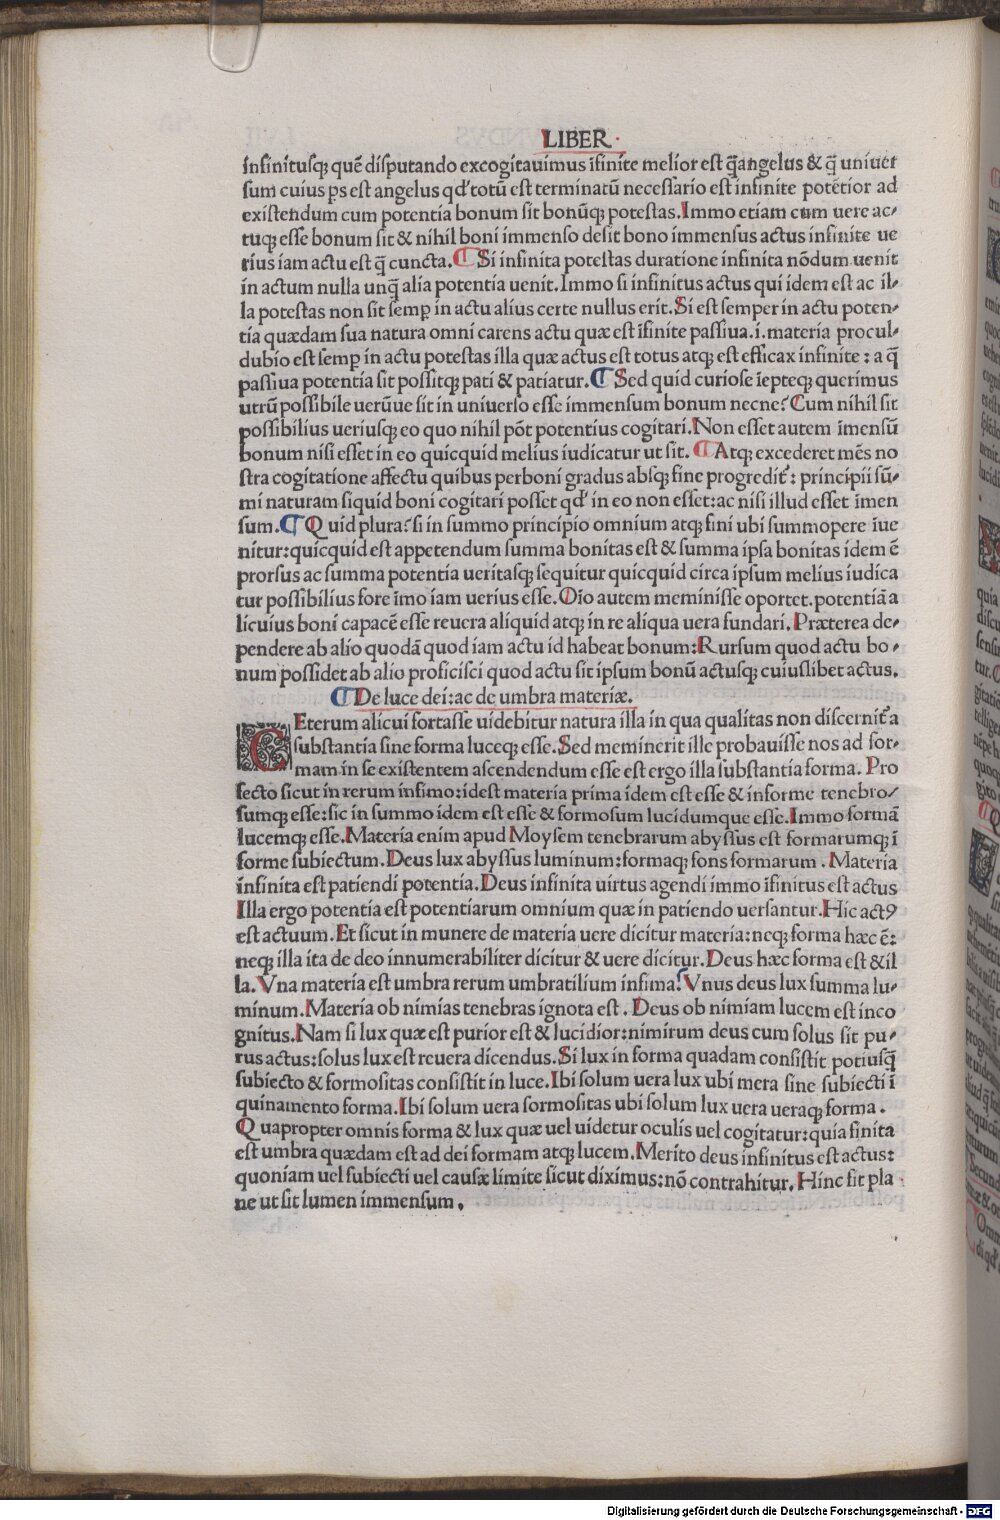 LIBER
infinitusq; quē disputando excogitauimus ifinite melior est q̄ angelus & q̄ uniuer
sum cuius ps est angelus qd' totū est terminatū necessario est infinite potētior ad
existendum cum potentia bonum sit bonūq; potestas. Immo etiam cum uere ac-
tuq; esse bonum sit & nihil boni immenso desit bono immensus actus infinite ue
rius iam actu est q̄ cuncta. ¶ Si infinita potestas duratione infinita nōdum uenit
in actum nulla unq̄ alia potentia uenit. Immo si infinitus actus qui idem est ac il-
la potestas non sit semp in actu alius certe nullus erit. Si est semper in actu poten-
tia quædam sua natura omni carens actu quæ est īfinite passiua .i. materia procul-
dubio est semp in actu potestas illa quæ actus est totus atq; est efficax infinite : a q̄
passiua potentia sit possitq; pati & patiatur. ¶ Sed quid curiose īepteq; querimus
utrū possibile uerūue sit in uniuerso esse immensum bonum necne? Cum nihil sit
possibilius ueriusq; eo quo nihil pōt potentius cogitari. Non esset autem īmensū
bonum nisi esset in eo quicquid melius iudicatur ut sit. ¶ Atq; excederet mēs no
stra cogitatione affectu quibus per boni gradus absq; fine progredit᷑ : principii sū-
mi naturam siquid boni cogitari posset qd' in eo non esset: ac nisi illud esset īmen
sum. ¶ Quid plura? si in summo principio omnium atq; fini ubi summopere īue
nitur: quicquid est appetendum summa bonitas est & summa ipsa bonitas idem ē
prorsus ac summa potentia ueritasq; sequitur quicquid circa ipsum melius iudica
tur possibilius fore īmo iam uerius esse. Oīo autem meminisse oportet. potentiā a
licuius boni capacē esse reuera aliquid atq; in re aliqua uera fundari. Præterea de-
pendere ab alio quodā quod iam actu id habeat bonum: Rursum quod actu bo-
num possidet ab alio proficisci quod actu sit ipsum bonū actusq; cuiuslibet actus.
¶ De luce dei: ac de umbra materiæ.
CEterum alicui fortasse uidebitur natura illa in qua qualitas non discernit᷑ a
substantia sine forma luceq; esse. Sed meminerit ille probauisse nos ad for-
mam in se existentem ascendendum esse est ergo illa substantia forma. Pro
fecto sicut in rerum infimo: idest materia prima idem est esse & informe tenebro/
sumq; esse: sic in summo idem est esse & formosum lucidumque esse. Immo formā
lucemq; esse. Materia enim apud Moysem tenebrarum abyssus est formarumq; ī
forme subiectum. Deus lux abyssus luminum: formaq; fons formarum . Materia
infinita est patiendi potentia. Deus infinita uirtus agendi immo ifinitus est actus
Illa ergo potentia est potentiarum omnium quæ in patiendo uersantur. Hic actꝰ
est actuum. Et sicut in munere de materia uere dicitur materia: neq; forma hæc ē:
neq; illa ita de deo innumerabiliter dicitur & uere dicitur. Deus hæc forma est & il
la. Vna materia est umbra rerum umbratilium infima? Vnus deus lux summa lu-
minum. Materia ob nimias tenebras ignota est . Deus ob nimiam lucem est inco
gnitus. Nam si lux quæ est purior est & lucidior: nimirum deus cum solus sit pu-
rus actus: solus lux est reuera dicendus. Si lux in forma quadam consistit potiusq̄
subiecto & formositas consistit in luce. Ibi solum uera lux ubi mera sine subiecti ī
quinamento forma. Ibi solum uera formositas ubi solum lux uera ueraq; forma .
Quapropter omnis forma & lux quæ uel uidetur oculis uel cogitatur: quia finita
est umbra quædam est ad dei formam atq; lucem. Merito deus infinitus est actus:
quoniam uel subiecti uel causæ limite sicut diximus: nō contrahitur. Hinc fit pla
ne ut sit lumen immensum .
Digitalisierung gefördert durch die Deutsche Forschungsgemeinschaft - DFG